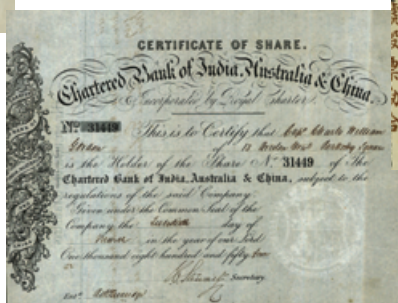 CERTIFICATE OF SHARE.
Chartered Bank of India, Australia & China.
Incorporated by Royal Charter.
No. 31449 This is to Certify that Capt. Charles William
Gordon of 12 Gordon Square
is the Holder of the Share No. 31449 of The
Chartered Bank of India, Australia & China, subject to the
regulations of the said Company.
Given under the Common Seal of the
Company the day of
in the year of our Lord
One thousand eight hundred and fifty
Secretary
Entd.